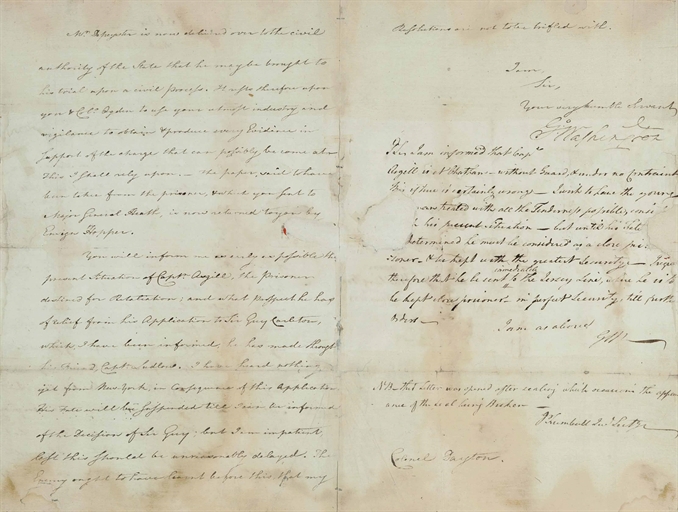 Mr. is now delivered over to the civil
authority of the State that he may be brought to
his trial upon a civil process. It rests therefore upon
you & Colo. Ogden to use your utmost industry and
vigilance to obtain & produce every Evidence in
support of the charge that can possibly be come at
This I shall rely upon. — The paper said to have
been taken from the prisoner, & which you sent to
Major General Heath, is now returned to you by
Ensign Hopper.
You will inform me as early as possible the
present Situation of Captn. Asgill, the Prisoner
destined for Retaliation; and what Prospect he has
of relief from his Application to Sir Guy Carleton,
which I have been informed he has made through
his Friend, Captn. Ludlow. I have heard nothing
yet from New York, in Consequence of this Application
His Fate will be suspended till I can be informed
of the Decision of Sir Guy; but I am impatient
lest this should be unreasonably delayed. The
Enemy ought to have learnt before this, that my
Resolutions are not to be trifled with.
I am,
Sir,
Your very humble Servant
Go Washington
P.S. I am informed that Capt.
Asgill is at Chatham — without Guard, & under no Constraint
This if true is certainly wrong — I wish to have the young
treated with all the Tenderness possible,
his present situation — but until his fate
determined he must be considered as a close pri-
soner — & be kept with the greatest Security —
therefore that he be sent immediately to the Jersey Line, where he is to
be kept close prisoner — in perfect Security, till further
orders —
I am as above
GW —
N.B. this letter was opened after sealing which occasions the appear-
ance of the seal being broken —
Trumbull Jun. Secty
Colonel Dayton.